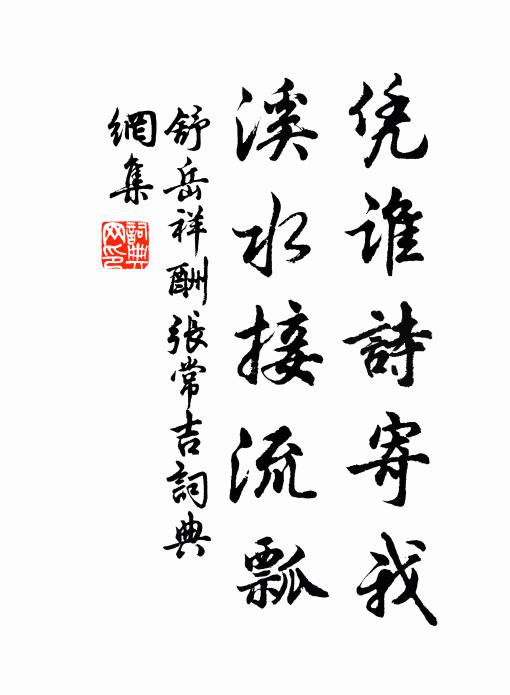 凭誰詩寄我
溪水接流瓢
舒岳祥酬張常吉詞典
網集
詞典
网印